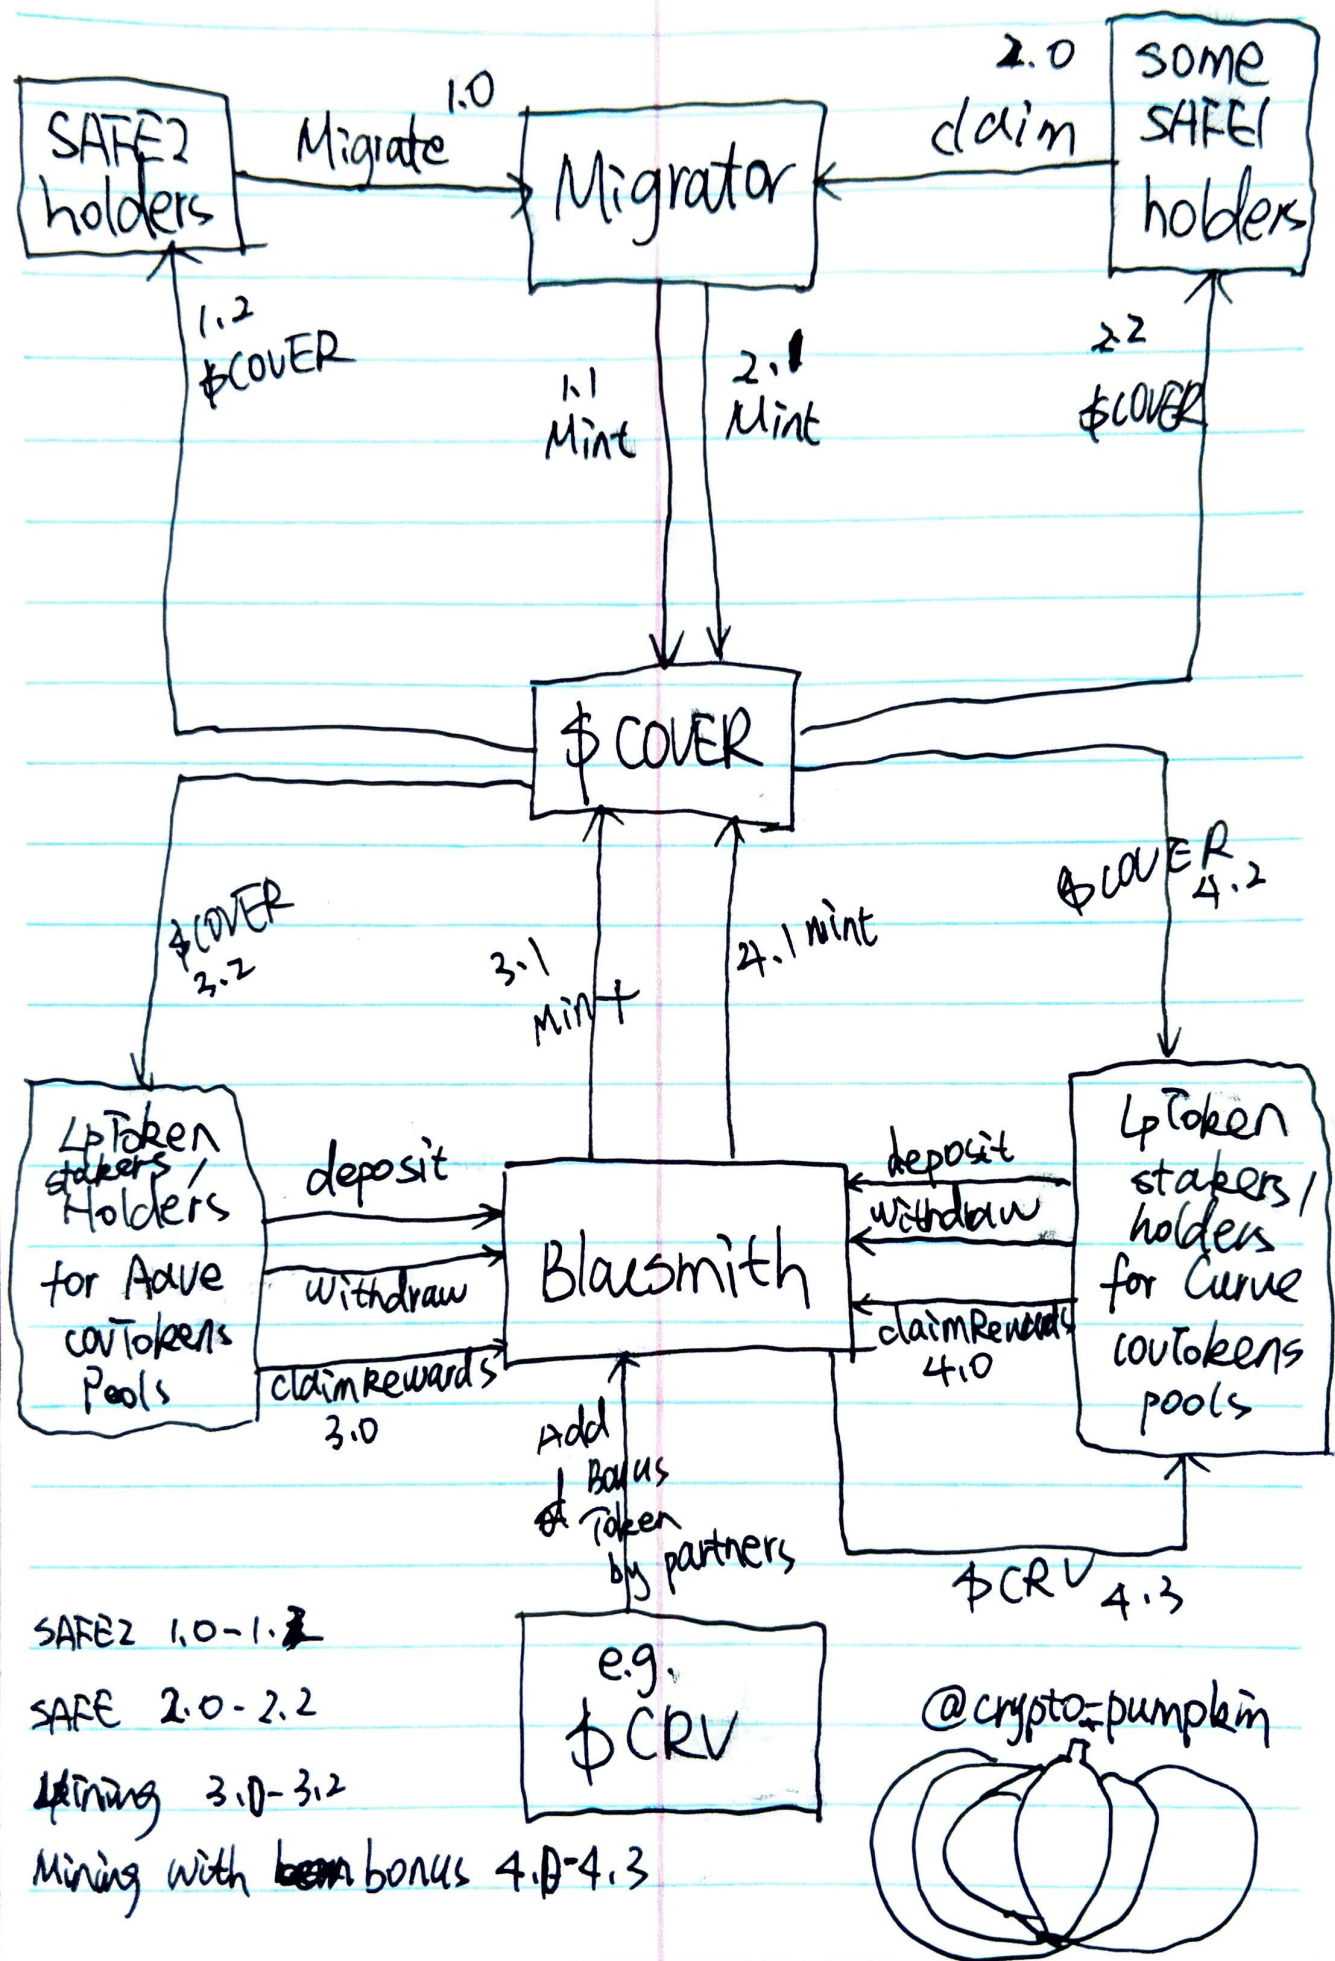 1.0
2.0
some
SAFE1
holders
SAFE2
holders
Migrate
Migrator
claim
1.2
$COVER
1.1
Mint
2.1
Mint
2.2
$COVER
$ COVER
$COVER
3.2
3.1
Mint
4.1 mint
$COVER
4.2
LpToken
stakers/
Holders
for Aave
covTokens
Pools
deposit
withdraw
claimRewards
3.0
Blacsmith
deposit
withdraw
claimRewards
4.0
LpToken
stakers/
holders
for Curve
covTokens
pools
Add
Bonus
Token
by partners
$CRV 4.3
e.g.
$CRV
SAFE2 1.0-1.2
SAFE 2.0-2.2
Mining 3.0-3.2
Mining with bonus 4.0-4.3
@crypto_pumpkin